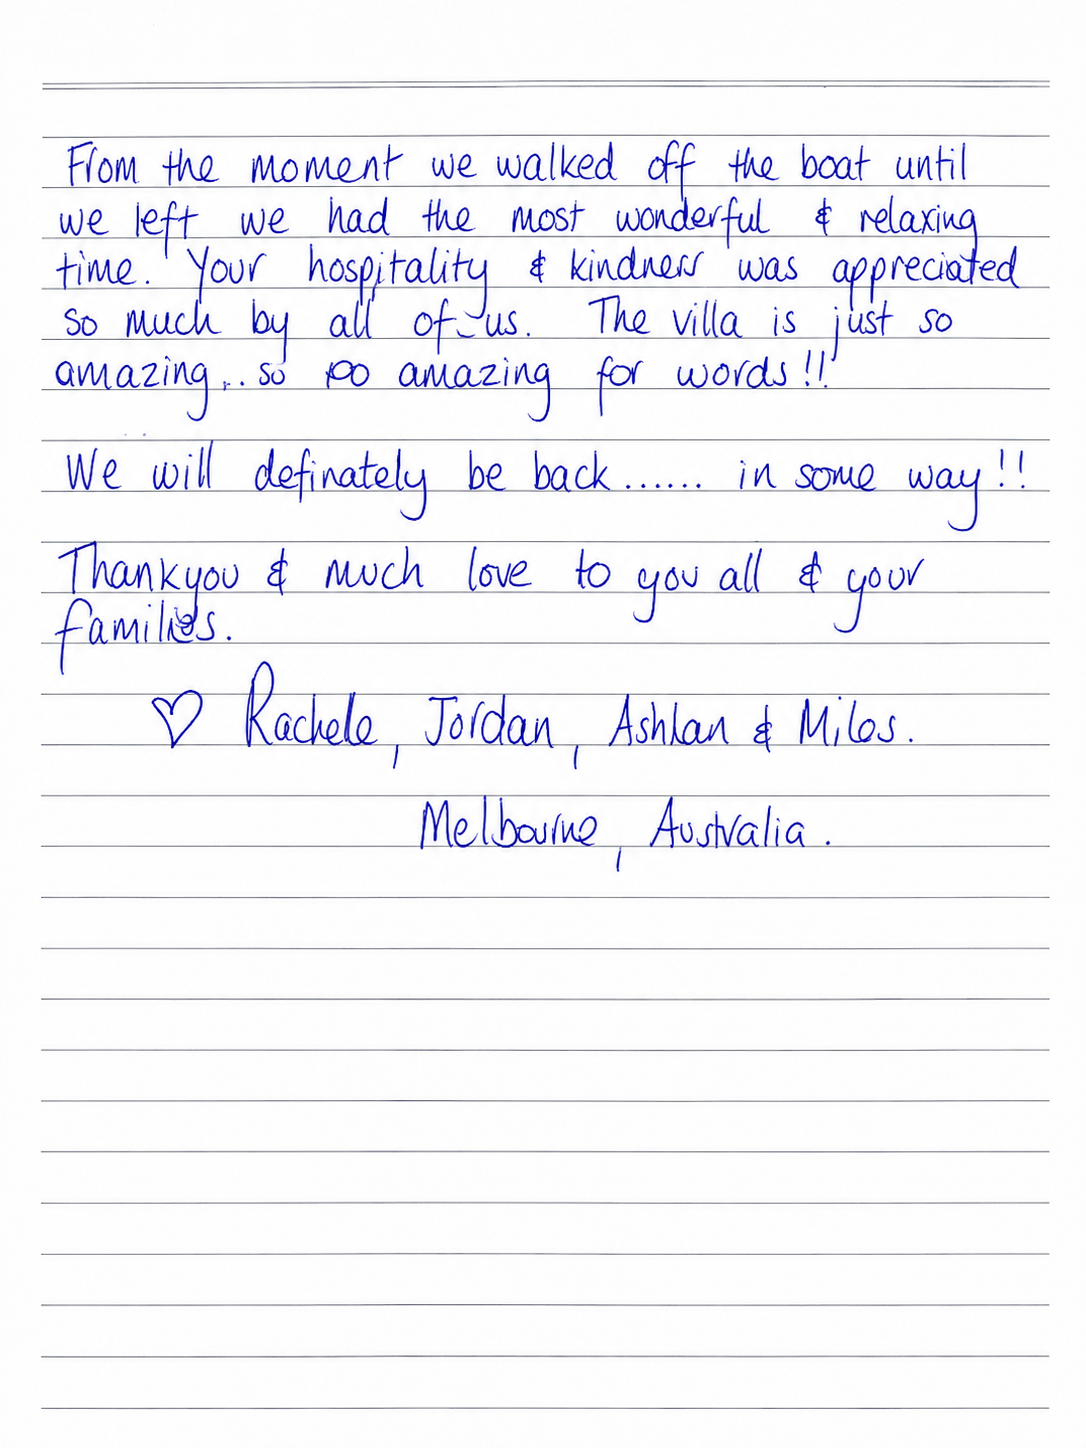 From the moment we walked off the boat until
we left we had the most wonderful & relaxing
time. Your hospitality & kindness was appreciated
so much by all of us. The villa is just so
amazing... so amazing for words!!
We will definately be back...... in some way!!
Thankyou & much love to you all & your
families.
♡ Rachele, Jordan, Ashlan & Miles.
Melbourne, Australia.